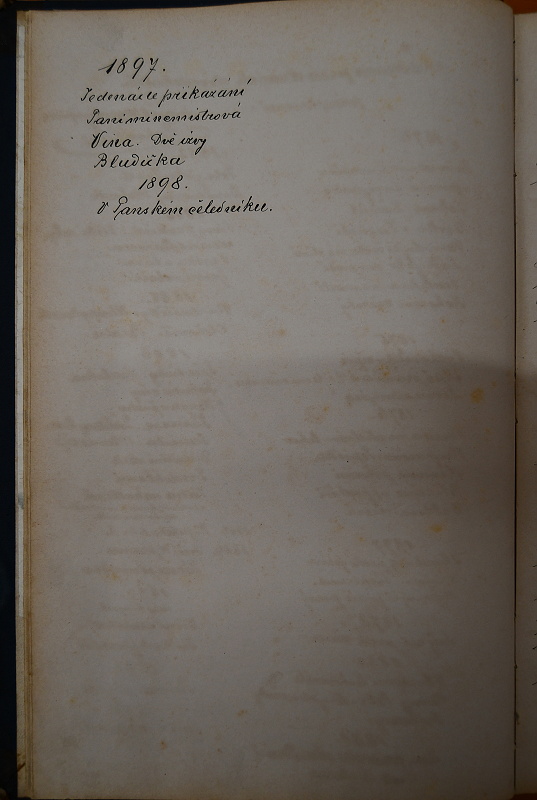 1897.
Jedenácte přikázání
Paní mincmistrová
Vina. Dvě vdovy
Bludička
1898.
V Panském čeledníku.